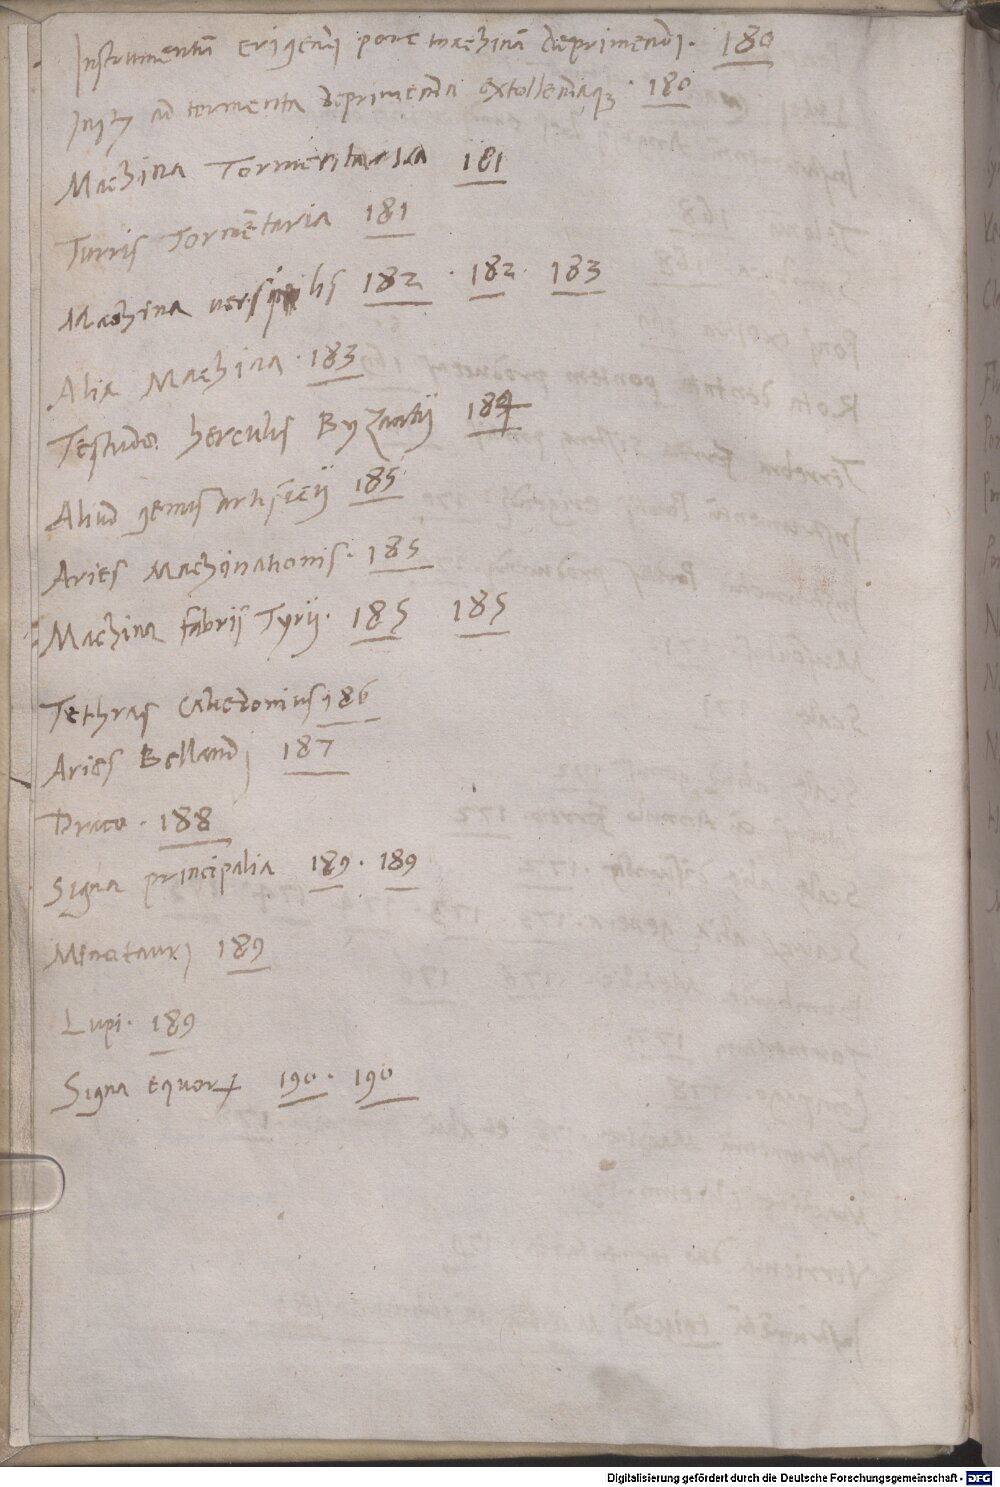 Instrumentū erigendi ponc machinā deprimendi. 180
ad tormenta deprimenda extollendaqꝫ. 180
Machina Tormentaria 181
Turris Tormētaria 181
Machina 182. 182. 183
Alia Machina. 183
Testudo herculis Byzantij 184
Aliud genus artificij 185
Aries Machinationis. 185
Machina fabrij Tyrij. 185 185
Tethras Calcedonius 186
Aries Bellandj 187
Draco. 188
Signa principalia 189. 189
Minotaurj 189
Lupi. 189
Signa equorꝝ 190. 190
Digitalisierung gefördert durch die Deutsche Forschungsgemeinschaft - DFG